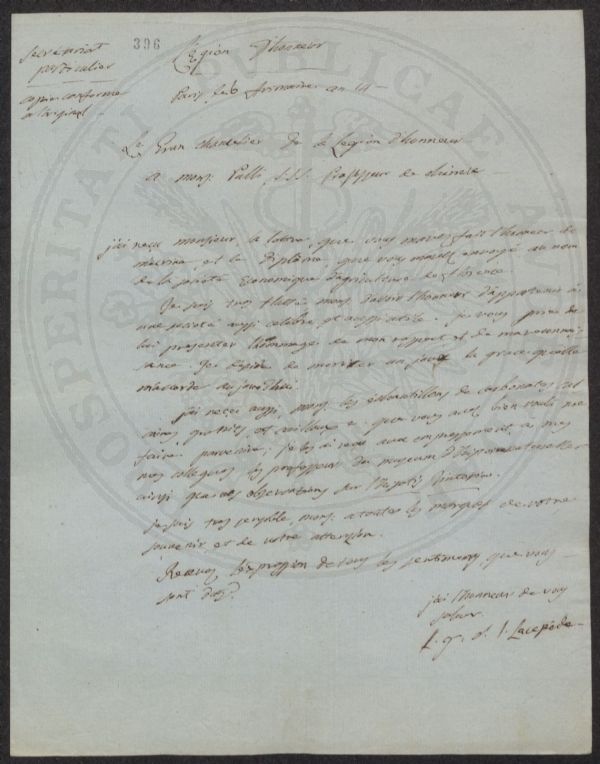 Secrétariat
particulier
copie conforme
a l'original
396
Légion D'honneur
Paris le 6 frimaire an 14
Le Gran Chancelier De la Légion d'honneur
a mons. Palli professeur de chimie
j'ai reçu monsieur la lettre que vous m'avez fait l'honneur de
m'écrire et le Diplome que vous m'avez envoyé au nom
de la société Economique d'agriculture de florence.
Je suis très flatté mons. D'avoir l'honneur d'appartenir à
une société aussi célèbre et aussi utile. je vous prie de
lui presenter l'hommage de mon respect et de ma reconnais
sance. J'ai désir de meriter un jour la grace qu'elle
m'accorde aujourdhui.
j'ai reçu aussi, mons. les echantillons de carbonates
que vous avez bien voulu me
faire parvenir, je les ai reçu avec empressement, a mes
nos collegues les professeurs du museum d'histoire naturelle
ainsi que vos observations sur
je suis très sensible, mons. a toutes les marques de votre
souvenir et de votre attention.
Recevez l'expression de tous les sentimens que vous
sont dus.
j'ai l'honneur de vous
saluer.
L. g. d. l. Lacepède
PROSPERITATI PUBLICAE AU